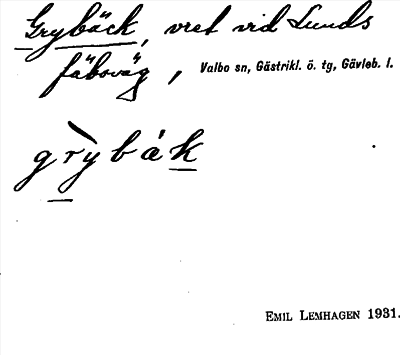 Grybäck, vret vid Lunds
fäboväg, Valbo sn, Gästrikl. ö. tg, Gävleb. l.
grybák
EMIL LEMHAGEN 1931.